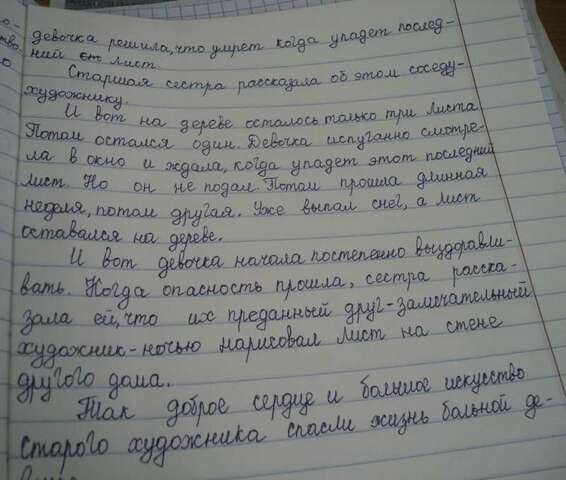 девочка решила, что умрет когда упадет послед-
ний его лист.
Старшая сестра рассказала об этом соседу-
художнику.
И вот на дереве осталось только три листа.
Потом остался один. Девочка испуганно смотре-
ла в окно и ждала, когда упадет этот последний
лист. Но он не подал. Потом прошла длинная
неделя, потом другая. Уже выпал снег, а лист
оставался на дереве.
И вот девочка начала постепенно выздоравли-
вать. Когда опасность прошла, сестра расска-
зала ей, что их преданный друг-замечательный
художник-ночью нарисовал лист на стене
другого дома.
Так доброе сердце и большое искусство
старого художника спасли жизнь больной де-